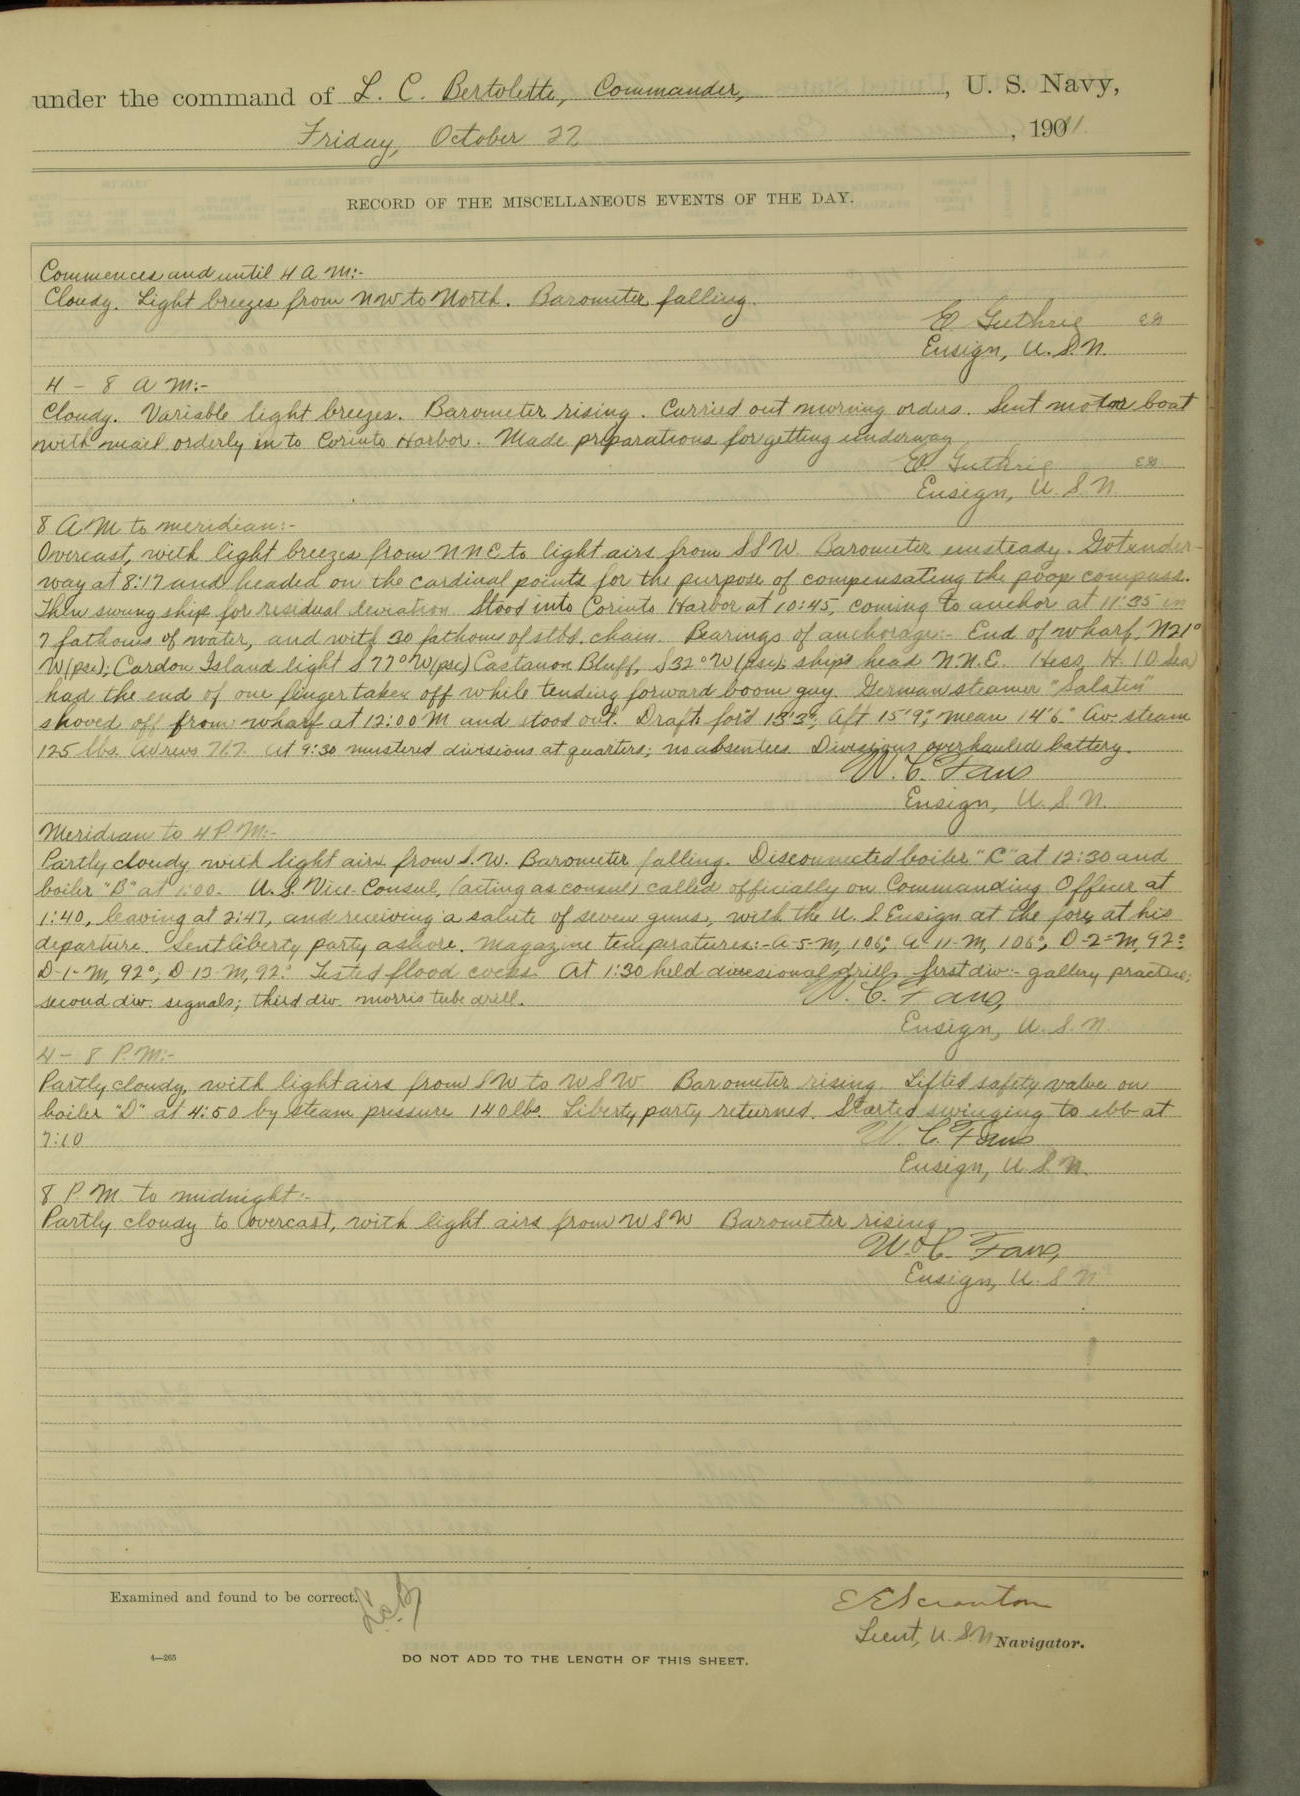 under the command of L. C. Bertolette, Commander, , U. S. Navy,
Friday, October 27 , 1911.
RECORD OF THE MISCELLANEOUS EVENTS OF THE DAY.
Commences and until 4 A M:-
Cloudy. Light breezes from NW to North. Barometer falling.
E Guthrie
Ensign, U. S. N.
4 - 8 A M:-
Cloudy. Variable light breezes. Barometer rising. Carried out morning orders. Sent motor boat
with mail orderly in to Corinto Harbor. Made preparations for getting underway.
E. Guthrie
Ensign, U. S. N
8 A M to meridian:-
Overcast, with light breezes from NNE to light airs from SSW. Barometer unsteady. Got under-
way at 8:17 and headed on the cardinal points for the purpose of compensating the poop compass.
Then swung ship for residual deviation. Stood into Corinto Harbor at 10:45, coming to anchor at 11:35 in
7 fathoms of water, and with 30 fathoms of stbd. chain. Bearings of anchorage:- End of wharf, N21°
W (psc); Cardon Island light S 77° W (psc) Castanon Bluff, S32° W (psc); ship's head N.N.E. Hess, H. (O Sea)
had the end of one finger taken off while tending forward boom guy. German steamer "Salatis"
shoved off from wharf at 12:00 M and stood out. Draft: for'd 13'3", Aft 15'9", mean 14'6". Av. steam
125 lbs. Av revs 76.7. At 9:30 mustered divisions at quarters; no absentees. Divisions overhauled battery.
W. C. Faus
Ensign, U. S. N.
Meridian to 4 P M:-
Partly cloudy with light airs from S.W. Barometer falling. Disconnected boiler "C" at 12:30 and
boiler "B" at 1:00. U. S. Vice-Consul, (acting as consul) called officially on Commanding Officer at
1:40, leaving at 2:47, and receiving a salute of seven guns, with the U. S. Ensign at the fore, at his
departure. Sent liberty party ashore. Magazine temperatures:- A-5-M, 106°; A-11-M, 106°, D-2-M, 92°
D-1-M, 92°; D-13-M, 92°. Tested flood cocks. At 1:30 held divisional drill, first div:- gallery practice;
second div. signals; third div. morris tube drill.
W. C. Faus,
Ensign, U. S. N.
4 - 8 P M:-
Partly cloudy, with light airs from SW to WSW Barometer rising. Lifted safety valve on
boiler "D" at 4:50 by steam pressure 140 lbs. Liberty party returned. Started swinging to ebb at
7:10
W. C. Faus
Ensign, U. S. N.
8 P. M. to midnight:-
Partly cloudy to overcast, with light airs from WSW Barometer rising
W. C. Faus,
Ensign, U. S. N
Examined and found to be correct. L.C.B.
E E Scranton
Lieut, U. S. N Navigator.
4—265
DO NOT ADD TO THE LENGTH OF THIS SHEET.